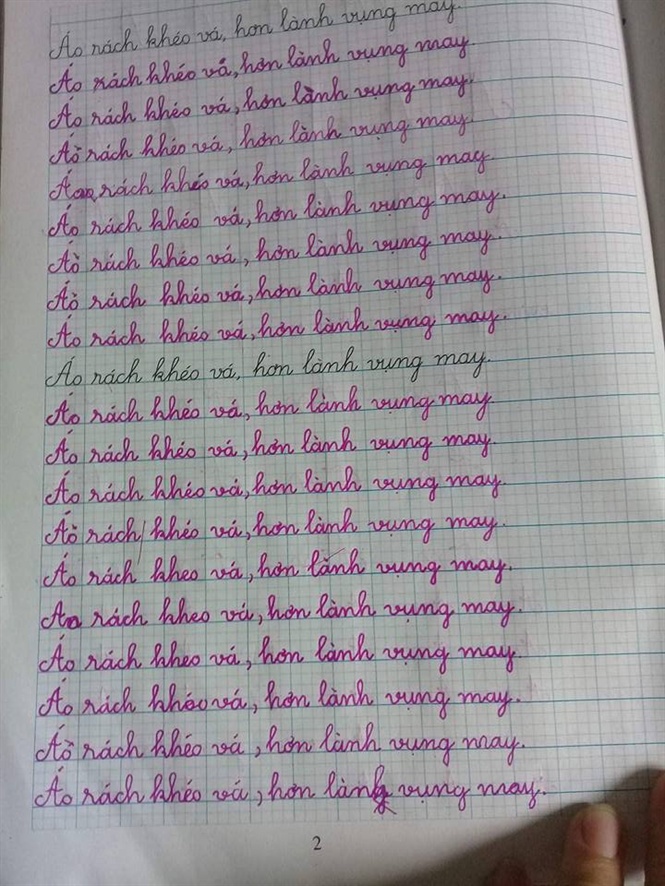 Áo rách khéo vá, hơn lành vụng may.
Áo rách khéo vá, hơn lành vụng may.
Áo rách khéo vá, hơn lành vụng may.
Áo rách khéo vá, hơn lành vụng may.
Áo rách khéo vá, hơn lành vụng may.
Áo rách khéo vá, hơn lành vụng may.
Áo rách khéo vá, hơn lành vụng may.
Áo rách khéo vá, hơn lành vụng may.
Áo rách khéo vá, hơn lành vụng may.
Áo rách khéo vá, hơn lành vụng may.
Áo rách khéo vá, hơn lành vụng may
Áo rách khéo vá, hơn lành vụng may.
Áo rách khéo vá, hơn lành vụng may.
Áo rách khéo vá, hơn lành vụng may.
Áo rách kheo vá, hơn lành vụng may.
Ao rách kheo vá, hơn lành vụng may.
Áo rách kheo vá, hơn lành vụng may.
Áo rách khéo vá, hơn lành vụng may.
Áo rách khéo vá, hơn lành vụng may.
Áo rách khéo vá, hơn lành vụng may.
2